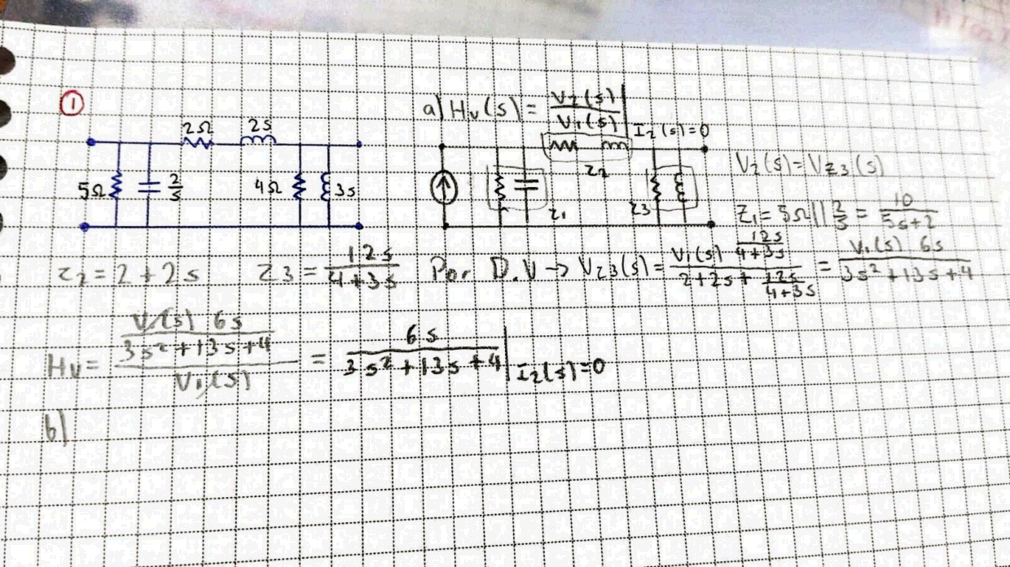 ①
a) Hv(s) = V2(s) / V1(s) | I2(s)=0
2Ω 2s
5Ω 2/s 4Ω 3s
Z2
Z1 Z3
V2(s) = VZ3(s)
Z1 = 5Ω || 2/s = 10 / (5s+2)
Z2 = 2 + 2s Z3 = 12s / (4+3s) Por D.V → VZ3(s) = (V1(s) 12s/(4+3s)) / (2+2s + 12s/(4+3s)) = V1(s) 6s / (3s²+13s+4)
Hv = (V1(s) 6s / (3s²+13s+4)) / V1(s) = 6s / (3s²+13s+4) | I2(s)=0
b)